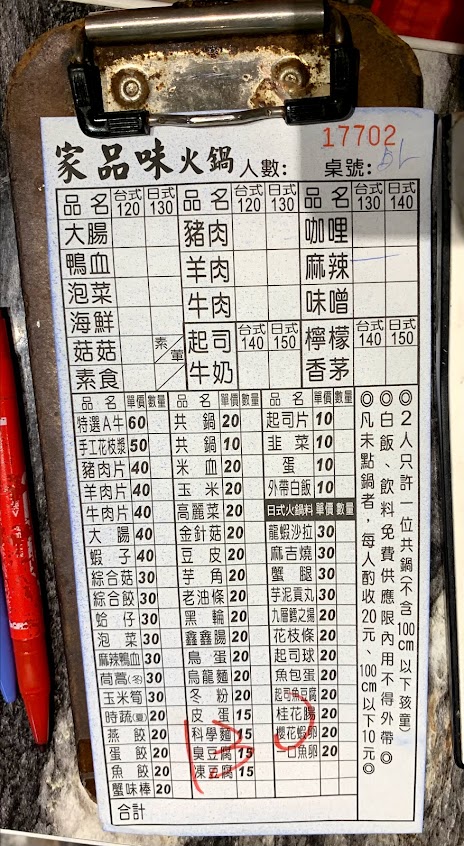 17702
家品味火鍋 人數: 桌號:
品名 台式120 日式130 品名 台式120 日式130 品名 台式130 日式140
大腸 豬肉 咖哩
鴨血 羊肉 麻辣
泡菜 牛肉 味噌
海鮮 起司牛奶 台式140 日式150 檸檬香茅 台式140 日式150
菇菇 素葷
素食
品名 單價 數量 品名 單價 數量 品名 單價 數量
特選A牛 60 共鍋 20 起司片 10
手工花枝漿 50 共鍋 10 韭菜 10
豬肉片 40 米血 20 蛋 10
羊肉片 40 玉米 20 外帶白飯 10
牛肉片 40 高麗菜 20 日式火鍋料 單價 數量
大腸 40 金針菇 20 龍蝦沙拉 30
蝦子 40 豆皮 20 麻吉燒 30
綜合菇 30 芋角 20 蟹腿 30
綜合餃 30 老油條 20 芋泥貢丸 30
蛤仔 30 黑輪 20 九層鱈之揚 20
泡菜 30 鑫鑫腸 20 花枝條 20
麻辣鴨血 30 鳥蛋 20 起司球 20
茼萵(冬) 30 烏龍麵 20 魚包蛋 20
玉米筍 30 冬粉 20 起司魚豆腐 20
時蔬(夏) 20 皮蛋 15 桂花腸 20
燕餃 20 科學麵 15 櫻花蝦卵 20
蛋餃 20 臭豆腐 15 一口魚卵 20
魚餃 20 凍豆腐 15
蟹味棒 20
合計
◎2人只許一位共鍋(不含100cm以下孩童)
◎白飯、飲料免費供應限內用不得外帶◎
◎凡未點鍋者,每人酌收20元、100cm以下10元◎